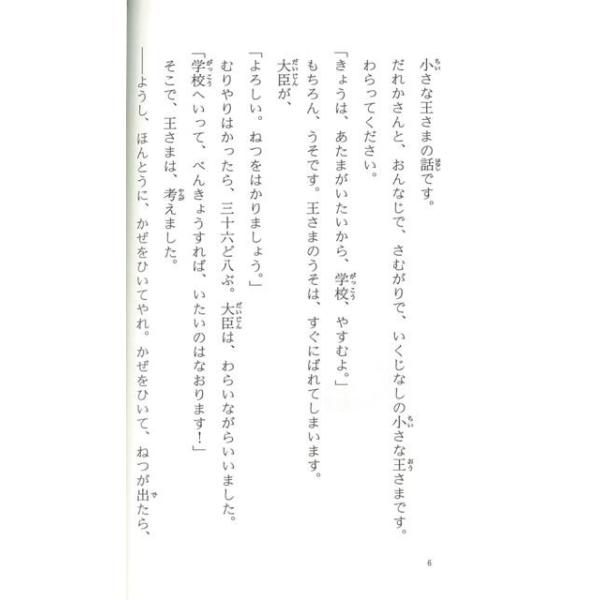 小さな王さまの話です。
だれかさんと、おんなじで、さむがりで、いくじなしの小さな王さまです。
わらってください。
「きょうは、あたまがいたいから、学校、やすむよ。」
もちろん、うそです。王さまのうそは、すぐにばれてしまいます。
大臣が、
「よろしい。ねつをはかりましょう。」
むりやりはかったら、三十六ど八ぶ。大臣は、わらいながらいいました。
「学校へいって、べんきょうすれば、いたいのはなおります！」
そこで、王さまは、考えました。
――ようし、ほんとうに、かぜをひいてやれ。かぜをひいて、ねつが出たら、
6